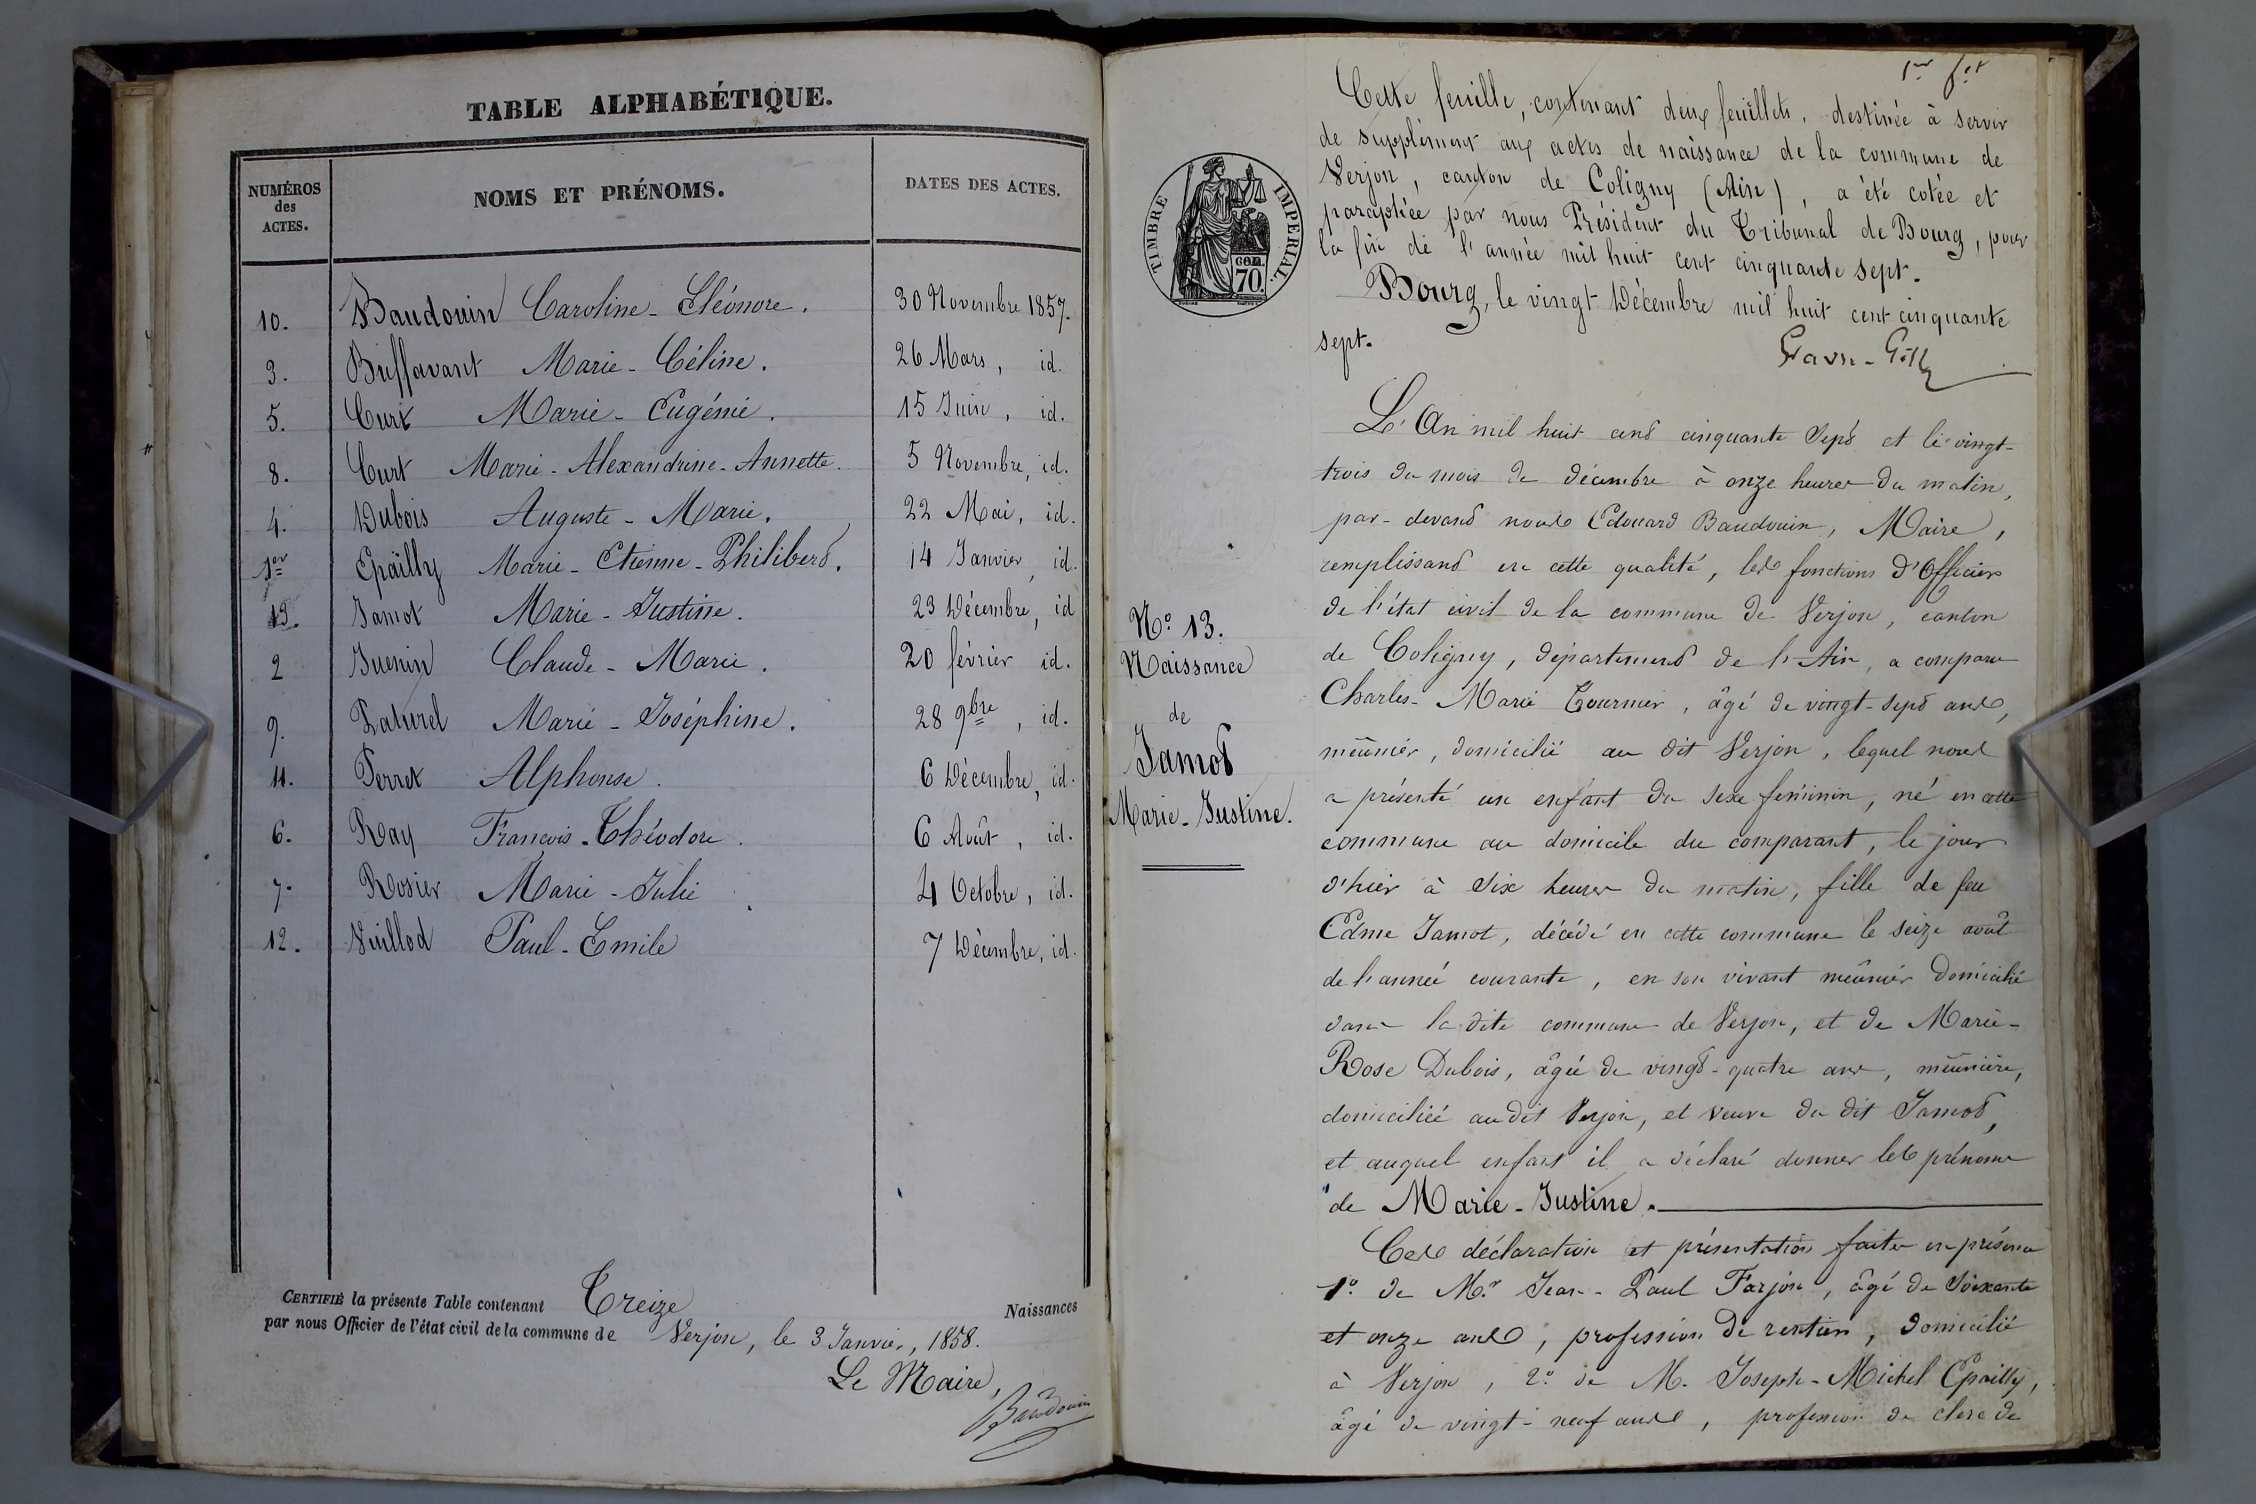 TABLE ALPHABÉTIQUE.
NUMÉROS des ACTES. NOMS ET PRÉNOMS. DATES DES ACTES.
10. Baudouin Caroline-Eléonore. 30 Novembre 1857.
3. Briffavant Marie-Céline. 26 Mars, id.
5. Curt Marie-Eugénie. 15 Juin, id.
8. Curt Marie-Alexandrine-Annette. 5 Novembre, id.
4. Dubois Auguste-Marie. 22 Mai, id.
1er Epailly Marie-Etienne-Philibert. 14 Janvier, id.
13. Jamot Marie-Justine. 23 Décembre, id
2 Juenin Claude-Marie. 20 février id.
9. Paturel Marie-Joséphine. 28 9bre, id.
11. Perret Alphonse. 6 Décembre, id.
6. Ray François-Théodore. 6 Août, id.
7. Rosier Marie-Julie. 4 Octobre, id.
12. Vuillod Paul-Emile 7 Décembre, id.
CERTIFIÉ la présente Table contenant Treize Naissances
par nous Officier de l'état civil de la commune de Verjon, le 3 Janvier, 1858.
Le Maire,
Baudouin
1er f.et
Cette feuille, contenant deux feuillets, destinée à servir
de supplément aux actes de naissance de la commune de
Verjon, canton de Coligny (Ain), a été cotée et
paraphée par nous Président du Tribunal de Bourg, pour
la fin de l'année mil huit cent cinquante sept.
Bourg, le vingt Décembre mil huit cent cinquante
sept.
TIMBRE IMPERIAL
70.
L'An mil huit cent cinquante sept et le vingt-
trois du mois de décembre à onze heures du matin,
par-devant nous Edouard Baudouin, Maire,
remplissant en cette qualité, les fonctions d'Officier
de l'état civil de la commune de Verjon, canton
de Coligny, département de l'Ain, a comparu
Charles-Marie Tournier, âgé de vingt-sept ans,
meûnier, domicilié au dit Verjon, lequel nous
a présenté un enfant du sexe féminin, né en cette
commune au domicile du comparant, le jour
d'hier à six heures du matin, fille de feu
Edme Jamot, décédé en cette commune le seize août
de l'année courante, en son vivant meûnier domicilié
dans la dite commune de Verjon, et de Marie-
Rose Dubois, âgée de vingt-quatre ans, meûnière,
domiciliée au dit Verjon, et veuve du dit Jamot,
et auquel enfant il a déclaré donner les prénoms
de Marie-Justine.
Ces déclaration et présentation faites en présence
1o. de Mr. Jean-Paul Farjon, âgé de soixante
et onze ans, profession de rentier, domicilié
à Verjon, 2o. de M. Joseph-Michel Epailly,
âgé de vingt-neuf ans, profession de clerc de
No. 13.
Naissance
de
Jamot
Marie-Justine.